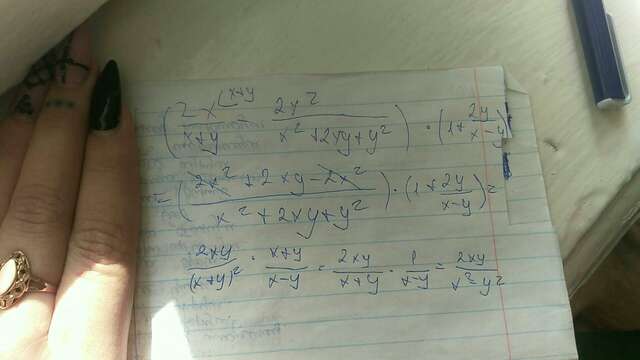 (2x^(x+y)/(x+y) - 2x²/(x² + 2xy + y²)) · (1 + 2y/(x-y)) =
= ((2x² + 2xy - 2x²)/(x² + 2xy + y²)) · (1 + 2y/(x-y)) =
2xy/(x+y)² · (x+y)/(x-y) = 2xy/(x+y) · 1/(x-y) = 2xy/(x² - y²)